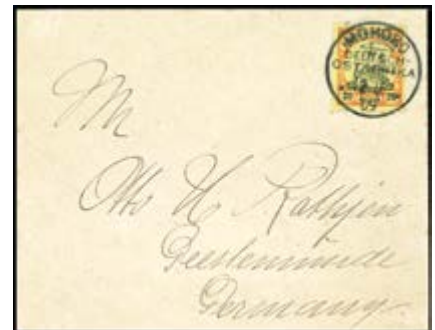 MOHORO
DEUTSCH-
OSTAFRIKA
09
Mr
Otto H Rathjen
Geestemünde
Germany.